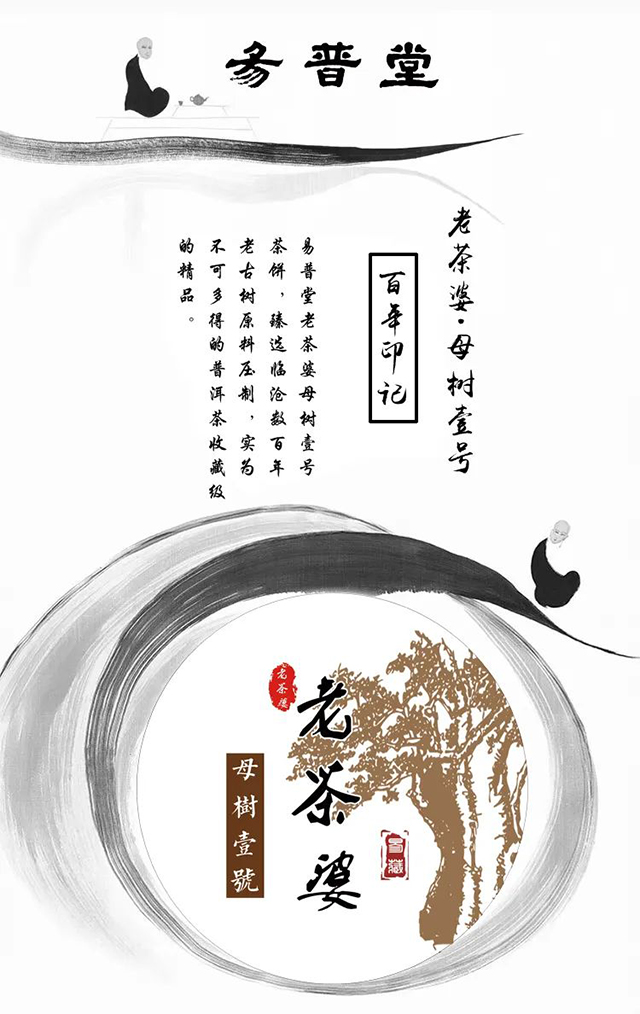 易普堂
老茶婆·母树壹号
百年印记
易普堂老茶婆母树壹号
茶饼，臻选临沧数百年
老古树原料压制，实为
不可多得的普洱茶收藏级
的精品。
老茶婆
老茶婆
母樹壹號
易藏